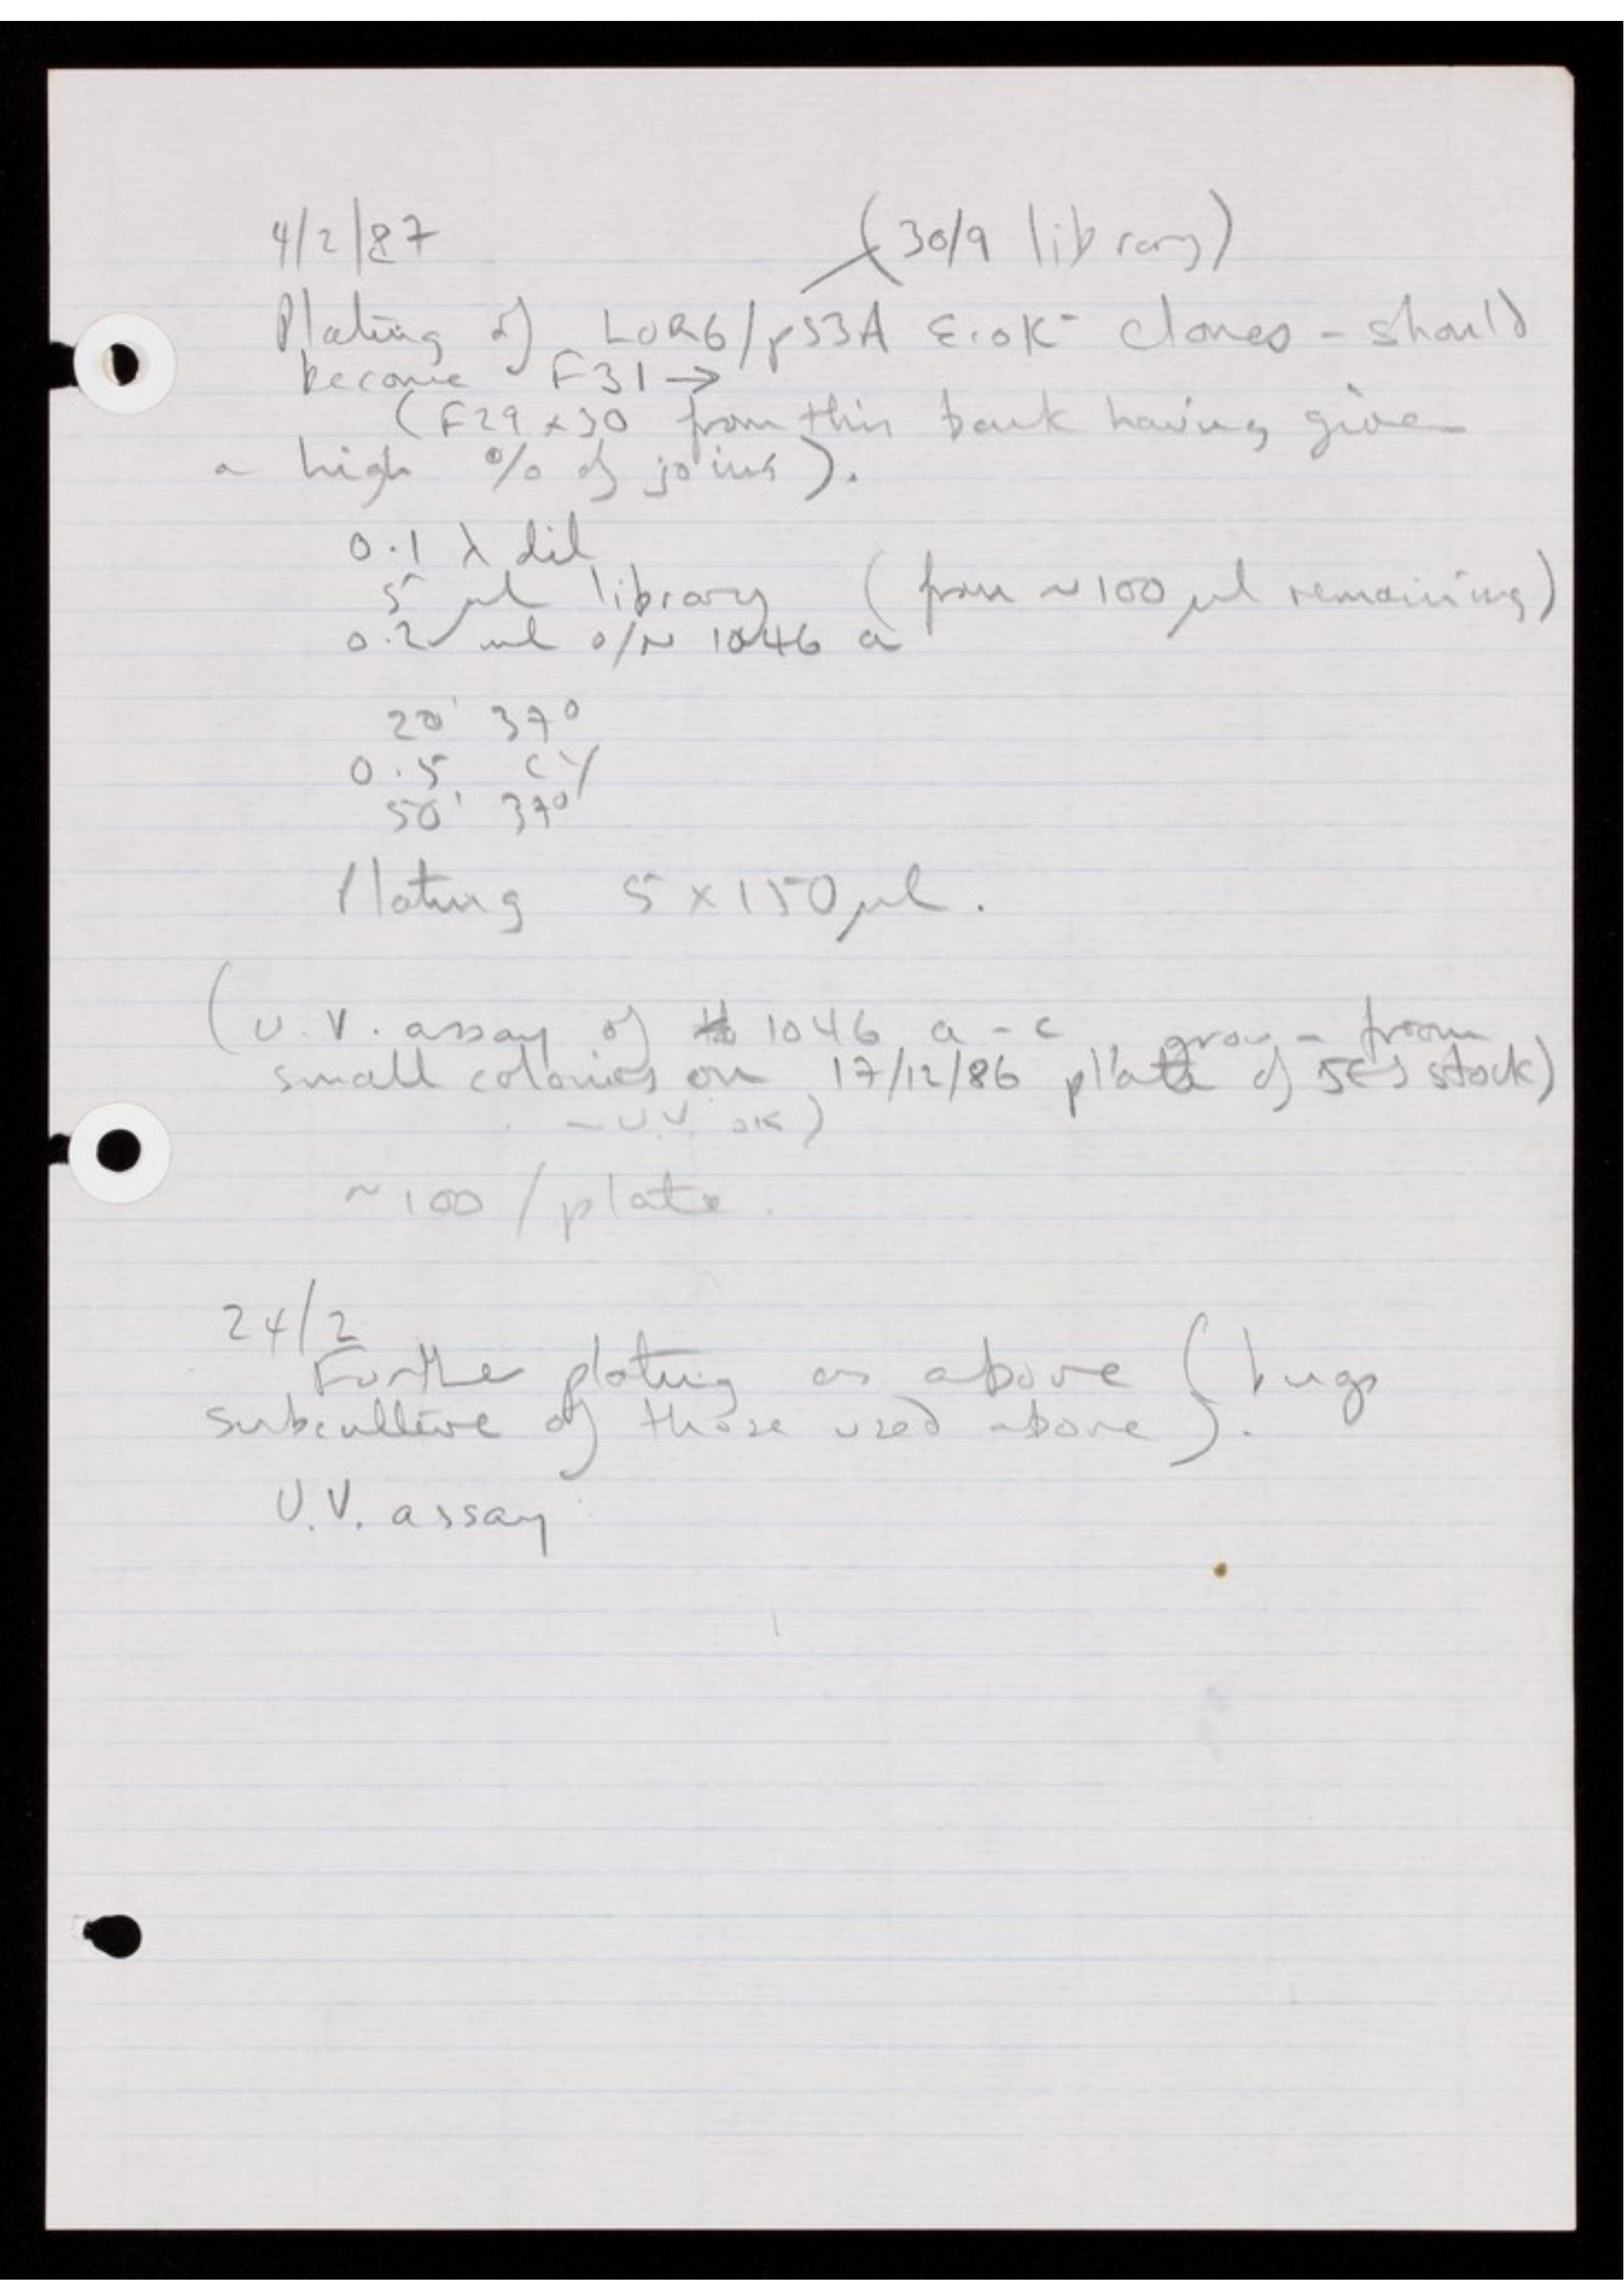 4/2/87 (30/9 library)
Plating of LOR6/pS3A EcoK⁻ clones - should
become F31 →
(F29 + 30 from this bank having given
a high % of joins).
0.1 λ dil
5 µl library (from ~100 µl remaining)
0.2 ml o/N 1046 a
20' 37°
0.5 CY
50' 37°
Plating 5 x 150 µl.
(U.V. assay of 1046 a - c grown from
small colonies on 17/12/86 plate of stock)
- U.V. OK)
~100 / plate.
24/2
Further plating as above (bugs
subculture of those used above).
U.V. assay